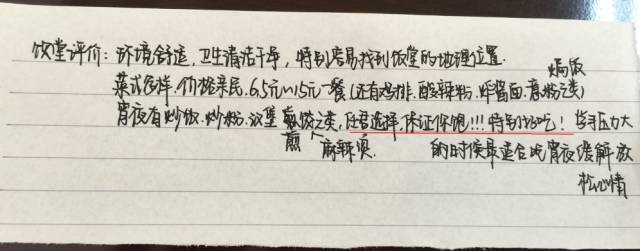 饮堂评价：环境舒适，卫生清洁干净，特别容易找到饭堂的地理位置.
菜式多样，价格亲民，6.5元~15元一餐（还有鸡排、酸辣粉、炸酱面、意粉之类） 焗饭
宵夜有炒饭、炒粉、汉堡、煎饺之类，任君选择，保证你饱!!!特别好吃! 学习压力大
煎 麻辣烫. 的时候最适合吃宵夜缓解放
松心情